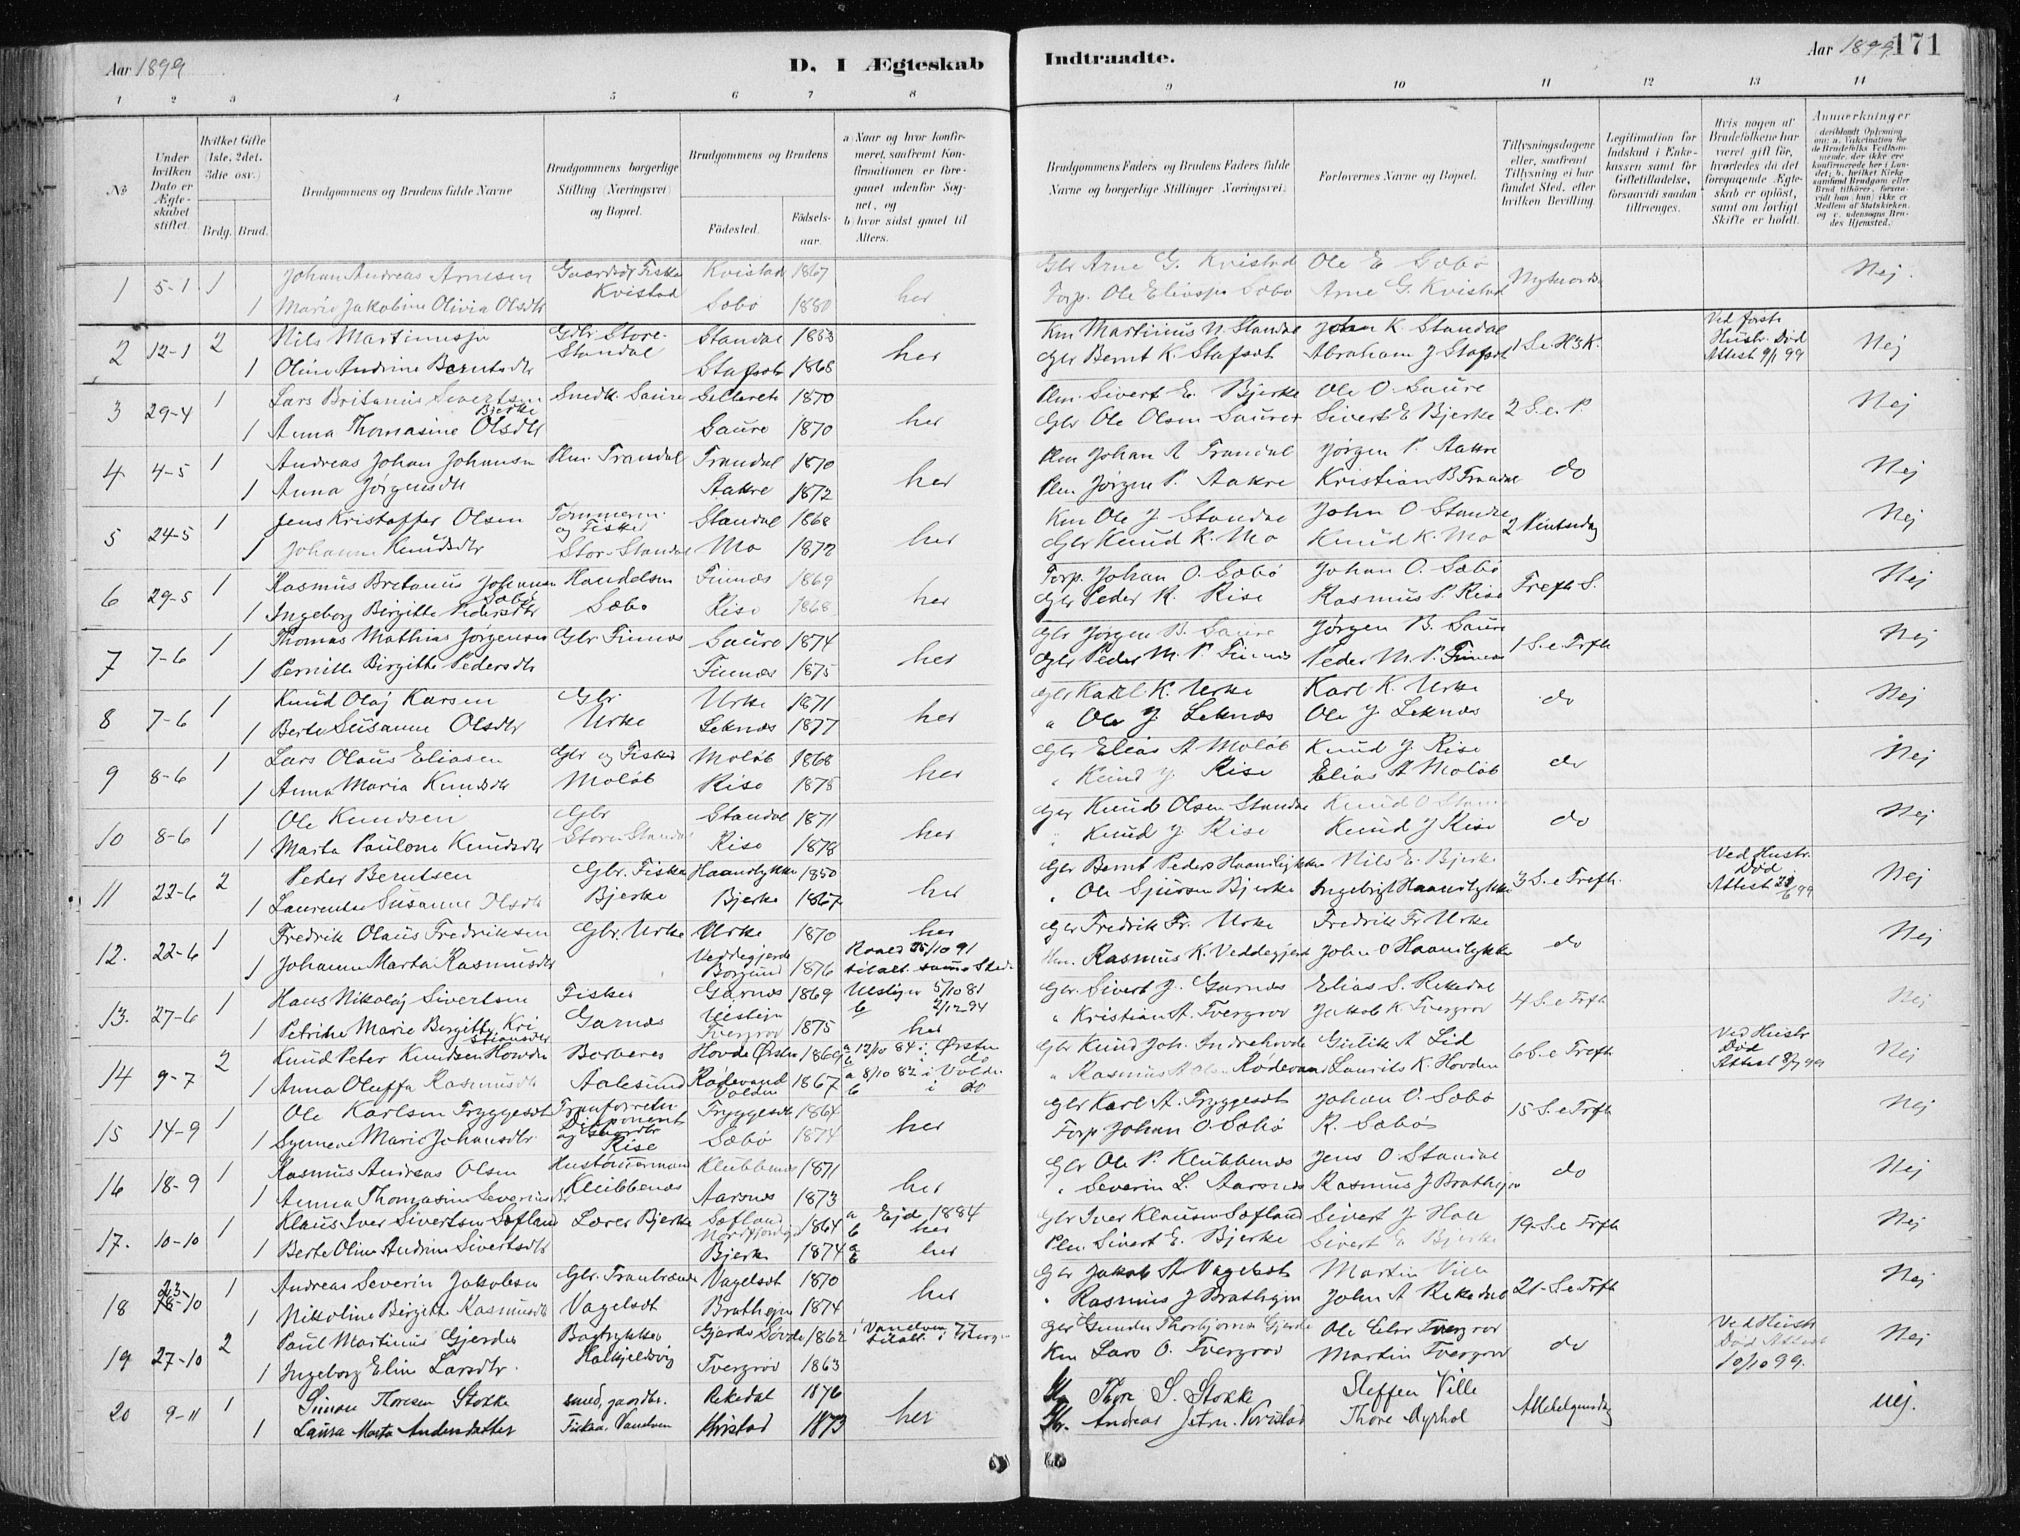 Aar 1899
D. I Ægteskab Indtraadte.
Aar 1899 171
1 2 3 4 5 6 7 8 9 10 11 12 13 14
No
Under hvilken Dato er Ægteskabet stiftet.
Hvilket Gifte (1ste, 2det, 3die osv.)
Brdg. Brud.
Brudgommens og Brudens fulde Navne
Brudgommens borgerlige Stilling (Næringsvei) og Bopæl.
Brudgommens og Brudens
Födested. Födselsaar.
a Naar og hvor konfirmeret, saafremt Konfirmationen er foregaaet udenfor Sognet, og
b hvor sidst gaaet til Alters.
Brudgommens Faders og Brudens Faders fulde Navne og borgerlige Stillinger (Næringsvei).
Forlovernes Navne og Bopæl.
Tillysningsdagene eller, saafremt Tillysning ei har fundet Sted, efter hvilken Bevilling.
Legitimation for Indskud i Enkekassen samt for Giftetilladelse, forsaavidt saadan tiltrænges.
Hvis nogen af Brudefolkene har været gift før, hvorledes da det foregaaende Ægteskab er opløst, samt om lovligt Skifte er holdt.
Anmærkninger
1 5-1 1 Johan Andreas Arnesen Gaardbr Fisker Kvistad 1867 her Gbr Arne G. Kvistad Ole E Sæbö Nytaarsd. Nej.
1 Marie Jakobine Olivia Olsdtr Kvistad Sæbö 1880 Forp. Ole Eliassen Sæbö Arne G. Kvistad
2 12-1 2 Nils Martinussen Gbr Store- Standal 1853 her Km Martinus N Standal John K. Standal 1 S. e. H3K. Ved første Hustr. Död Attest 9/1 99 Nej
1 Oline Andrine Berntsdtr Standal Stafsdt 1868 Gbr Bernt K. Stafsdt Abraham J Stafsdt
3 29-4 1 Lars Britanus Sivertsen Bjerke Snedk. Saure 1870 her Plm. Sivert E. Bjerke Ole O. Saure 2 S. e. P Nej
1 Anna Thomasine Olsdtr Saure 1870 Gbr Ole Olsen Saure Sivert E Bjerke
4 4-5 1 Andreas Johan Johansen Plm. Trandal Trandal 1870 her Plm Johan A Trandal Jørgen P. Aakre do Nej
1 Anna Jørgensdtr Aakre 1872 Plm. Jörgen P. Aakre Kristian B Trandal
5 24-5 1 Jens Kristoffer Olsen Tømmerm. og Fisker Standal 1868 her Km Ole J Standal John O Standal 2 Pintsedag Nej
1 Johanne Knudsdtr Stor-Standal Mo 1872 Gbr Knud K. Mo Knud K. Mo
6 29-5 1 Rasmus Bretanus Johansen Sæbö Handelsm Finnæs 1869 her Forp. Johan O. Sæbö Johan O. Sæbö Trefh S. Nej
1 Ingeborg Birgitte Pedersdtr Sæbo Rise 1868 Gbr Peder R. Rise Rasmus P. Rise
7 7-6 1 Thomas Mathias Jørgensen Gbr Finnæs Saure 1874 her Gbr Jørgen B. Saure Jørgen B. Saure 1 S. e Trfh Nej
1 Pernille Birgitte Pedersdtr Finnæs 1875 Gbr Peder M. P. Finnæs Peder M. P. Finnæs
8 7-6 1 Knud Olaj Karsen Gbr. Urke 1871 her Gbr Karl K. Urke Karl K. Urke do Nej
1 Berte Susanne Olsdtr Urke Leknæs 1877 " Ole J. Leknæs Ole J Leknæs
9 8-6 1 Lars Olaus Eliasen Gbr og Fisker Moløb 1868 her Gbr Elias A Moløb Knud J Rise do Nej
1 Anna Maria Knudsdtr Moløb Rise 1875 " Knud J. Rise Elias A Moløb
10 8-6 1 Ole Knudsen Gbr Standal 1871 her Gbr Knud Olsen Standal Knud O Standal do Nej
1 Marta Paulone Knudsdtr Store Standal Rise 1878 " Knud J. Rise Knud J Rise
11 22-6 2 Peder Berntsen Gbr. Fisker Haandlykke 1850 her Gbr Bernt Peders Haandlykke Nils E. Bjerke 3 S. e Trefh. Ved Hustr. Död Attest 99 Nej
1 Laurentse Susanne Olsdtr Bjerke Bjerke 1867 " Ole Bjerke Ingebrigt Haandlykke
12. 22-6 1 Fredrik Olaus Fredriksen Gbr. Urke Urke 1870 her Gbr Fredrik Fr. Urke Fredrik Fr Urke do Nej
1 Johanne Marta Rasmusdtr Veddegjerde Borgund 1876 Roald 25/10 91 til alt. samme Sted Rasmus K. Veddegjerde John O Haandlykke
13. 27-6 1 Hans Nikolaj Sivertsen Fisker Garnæs 1869 Ulstejn 5/10 81 b 2/12 94 Gbr. Sivert J. Garnæs Elias S. Rekedal 4 S. e Trfh Nej
1 Petrike Marie Bergitte Kristiansdtr Garnæs Tvergrov 1875 her " Kristian A. Tvergrov Jakob K. Tvergrov
14 9-7 2 Knud Peter Knudsen Hovden Barberer Hovde Ørsten 1860 a 12/10 84 i Ørsten b do Gbr Knud Joh. Indrehovde Gulik A Lid 6 S. e Trefh Ved Hustr Död Attest 99 Nej
1 Anna Oluffa Rasmusdtr Aalesund Rødevand Volden 1867 a 8/10 82 i Volden b i do " Rasmus Rødevand Laurits K. Hovden
15 14-9 1 Ole Karlsen Tryggesdt Disponent og Gbr Tryggesdt 1864 her Gbr Karl A. Tryggesdt Johan O. Sæbö 15 S. e Trfh Nej
1 Synneve Marie Johansdtr Rise Sæbö 1874 Forp Johan O. Sæbö R. Sæbös
16 18-9 1 Rasmus Andreas Olsen Hustømmermand Klubbenæs 1871 her Gbr Ole P. Klubbenes Jens O Standal do Nej
1 Anna Thomasine Severinsdtr Klubbenæs Aarsnes 1873 " Severin L. Aarsnes Rasmus J Brathejm
17. 10-10 1 Klaus Iver Sivertsen Sætland Lærer Bjerke Nordfjordejd 1864 a Ejd 1884 b her Gbr Iver Klausen Sætland Sivert J. Hole 19-S. e Trfh Nej
1 Berte Oline Andrine Sivertsdtr Bjerke 1874 a b her Plm. Sivert E. Bjerke Sivert E Bjerke
18 23-10 1 Andreas Severin Jakobsen Gbr. Vagelsdt 1870 her Gbr Jakob A Vagelsdt Martin Ville 21-S. e Trfh Nej
1 Nikoline Bergitte Rasmusdtr Vagelsdt Brathejm 1874 " Rasmus J Brathejm John A Rekedal
19 27-10 2 Paul Martinus Gjerde Bogtrykker Gjerde Søvde 1862 Vanelven 77 til alt. i Gbr Gunder Thorbjørnsen Gjerde Ole Tvergrov do Ved Hustr Död Attest 10/10 99. Nej
1 Ingeborg Elin Larsdtr. Hatkjeldsvig Tvergrov 1863 Km Lars O. Tvergrov Martin Tvergrov
20 9-11 1 Simon Thoresen Stokke smed, gardbr. Rekedal 1876 her Thore S. Stokke Steffen Ville Allehelgensdag nej.
1 Laura Marta Andersdatter Fiskaa, Vanelven Kvistad 1873 Gbr. Andreas Kvistad Thore Myrhol